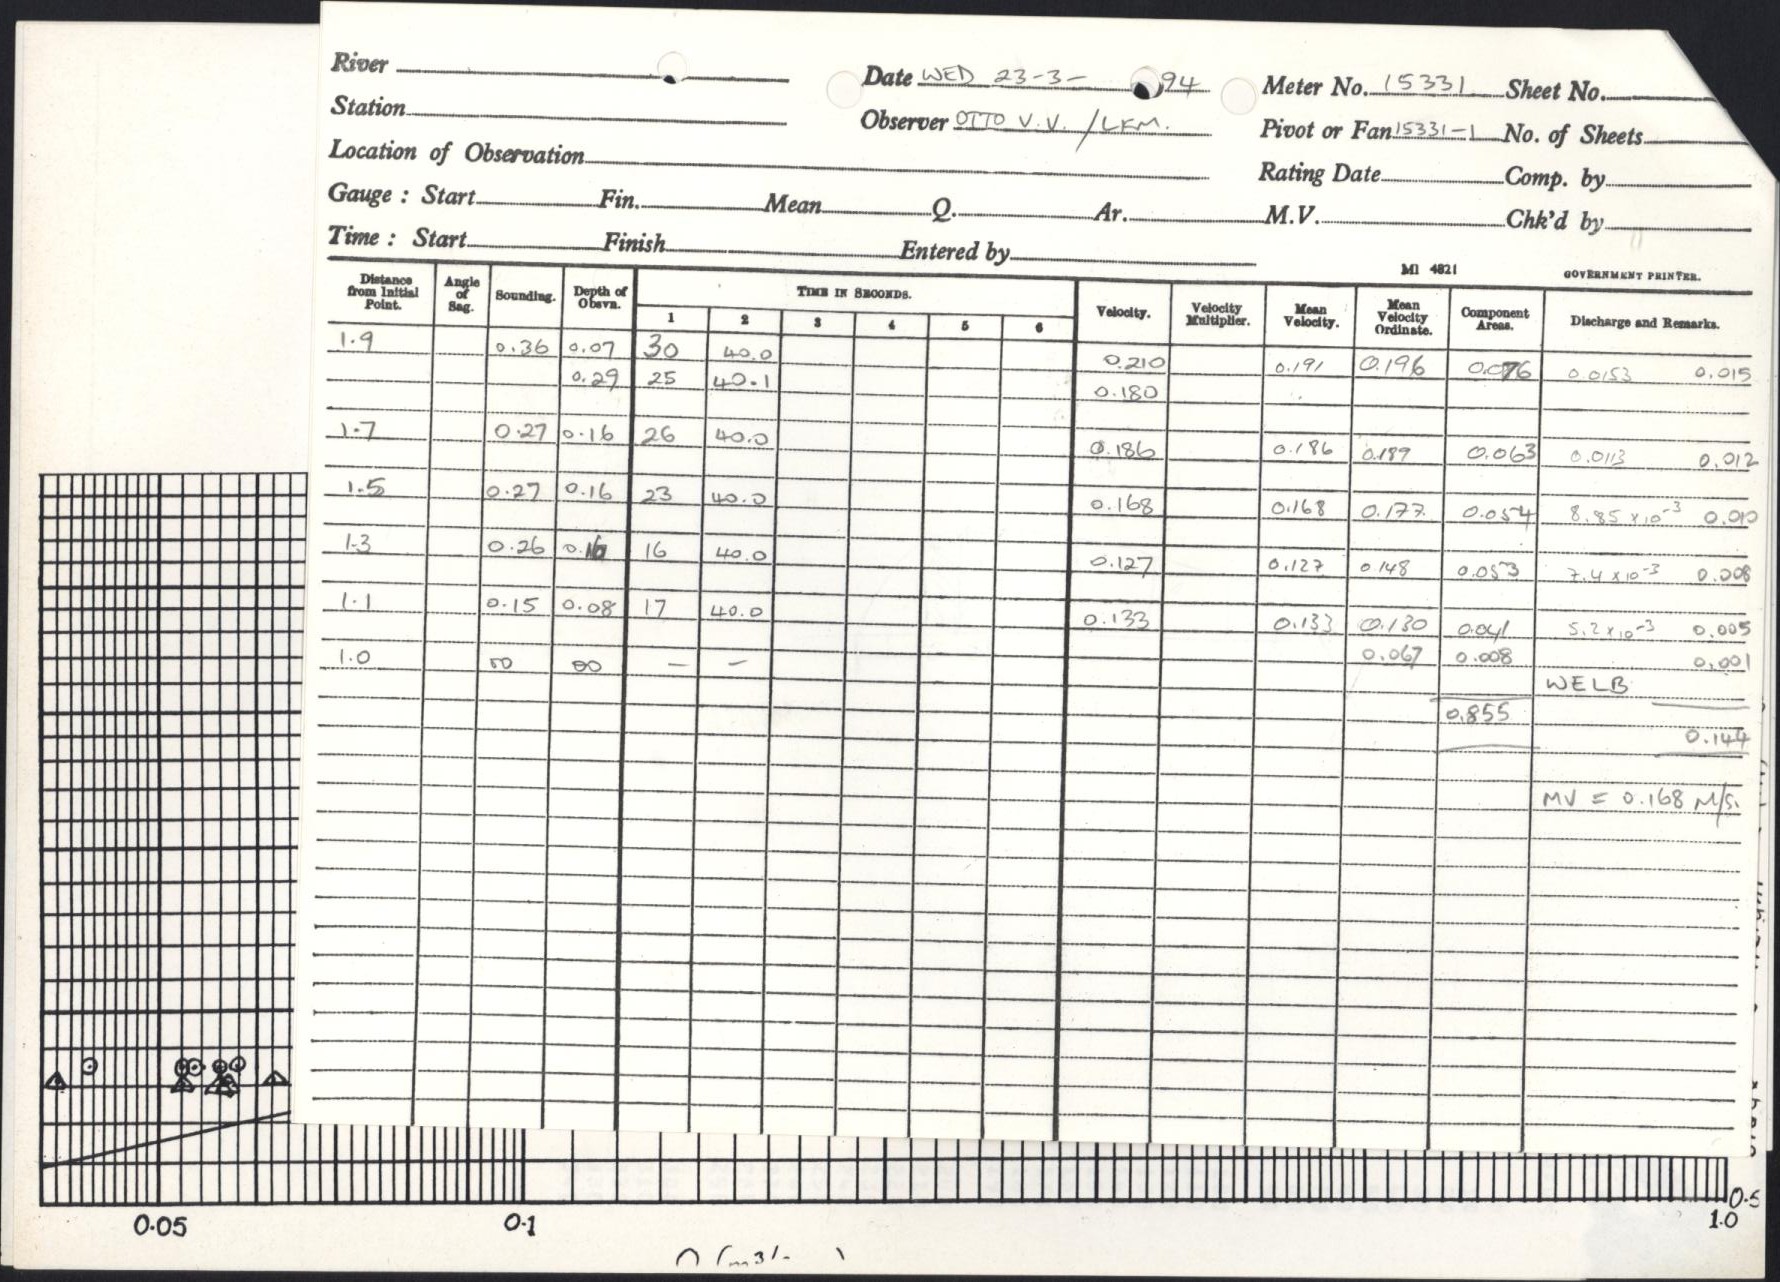 River Date WED 23-3- 94 Meter No. 15331 Sheet No.
Station Observer OTTO V.V. /LKM. Pivot or Fan 15331-1 No. of Sheets
Location of Observation Rating Date Comp. by
Gauge : Start Fin. Mean Q. Ar. M.V. Chk'd by
Time : Start Finish Entered by
MI 4821 GOVERNMENT PRINTER.
Distance from Initial Point. Angle of Sag. Sounding. Depth of Obsvn. TIME IN SECONDS. Velocity. Velocity Multiplier. Mean Velocity. Mean Velocity Ordinate. Component Areas. Discharge and Remarks.
1 2 3 4 5 6
1.9 0.36 0.07 30 40.0 0.210 0.191 0.196 0.076 0.0153 0.015
0.29 25 40.1 0.180
1.7 0.27 0.16 26 40.0 0.186 0.186 0.189 0.063 0.0113 0.012
1.5 0.27 0.16 23 40.0 0.168 0.168 0.177 0.054 8.85 x 10-3 0.010
1.3 0.26 0.16 16 40.0 0.127 0.127 0.148 0.053 7.4 x 10-3 0.008
1.1 0.15 0.08 17 40.0 0.133 0.133 0.130 0.041 5.2 x 10-3 0.005
1.0 00 00 – – 0.067 0.008 0.001
WELB
0.855
0.144
MV = 0.168 M/S.
0.05 0.1 1.0